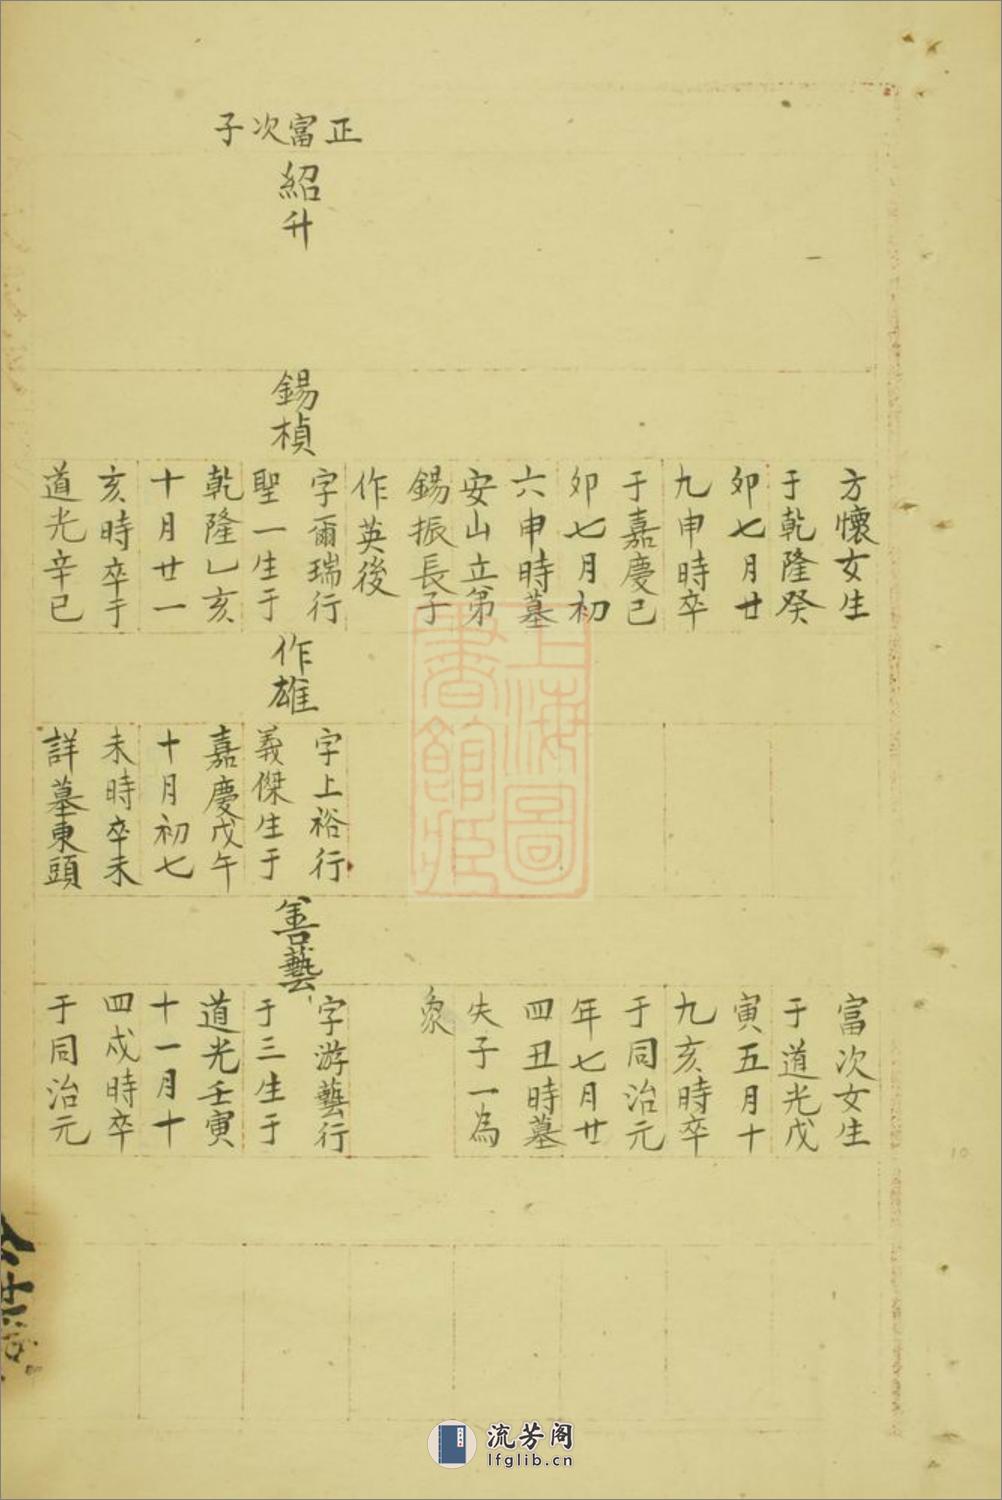 正富次子
紹升
錫楨
方懷女生
于乾隆癸
卯七月廿
九申時卒
于嘉慶己
卯七月初
六申時墓
安山立第
錫振長子
作英後
字爾瑞行
聖一生于
乾隆乙亥
十月廿一
亥時卒于
道光辛巳
作雄
字上裕行
義傑生于
嘉慶戊午
十月初七
未時卒未
詳墓東頭
善藝
富次女生
于道光戊
寅五月十
九亥時卒
于同治元
年七月廿
四丑時墓
失子一為
象
字游藝行
于三生于
道光壬寅
十一月十
四戌時卒
于同治元
上海圖
書館藏
流芳阁
lfglib.cn